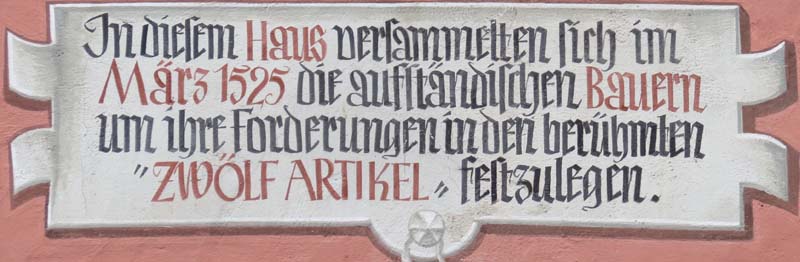 In diesem Haus versammelten sich im
März 1525 die aufständischen Bauern
um ihre Forderungen in den berühmten
"ZWÖLF ARTIKEL" festzulegen.